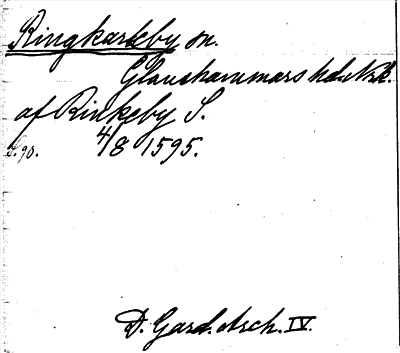 Ringkarleby sn.
Glanshammars hd. Nrk.
af Rinkeby S.
4/8 1595.
D. Gard. Arch. IV.